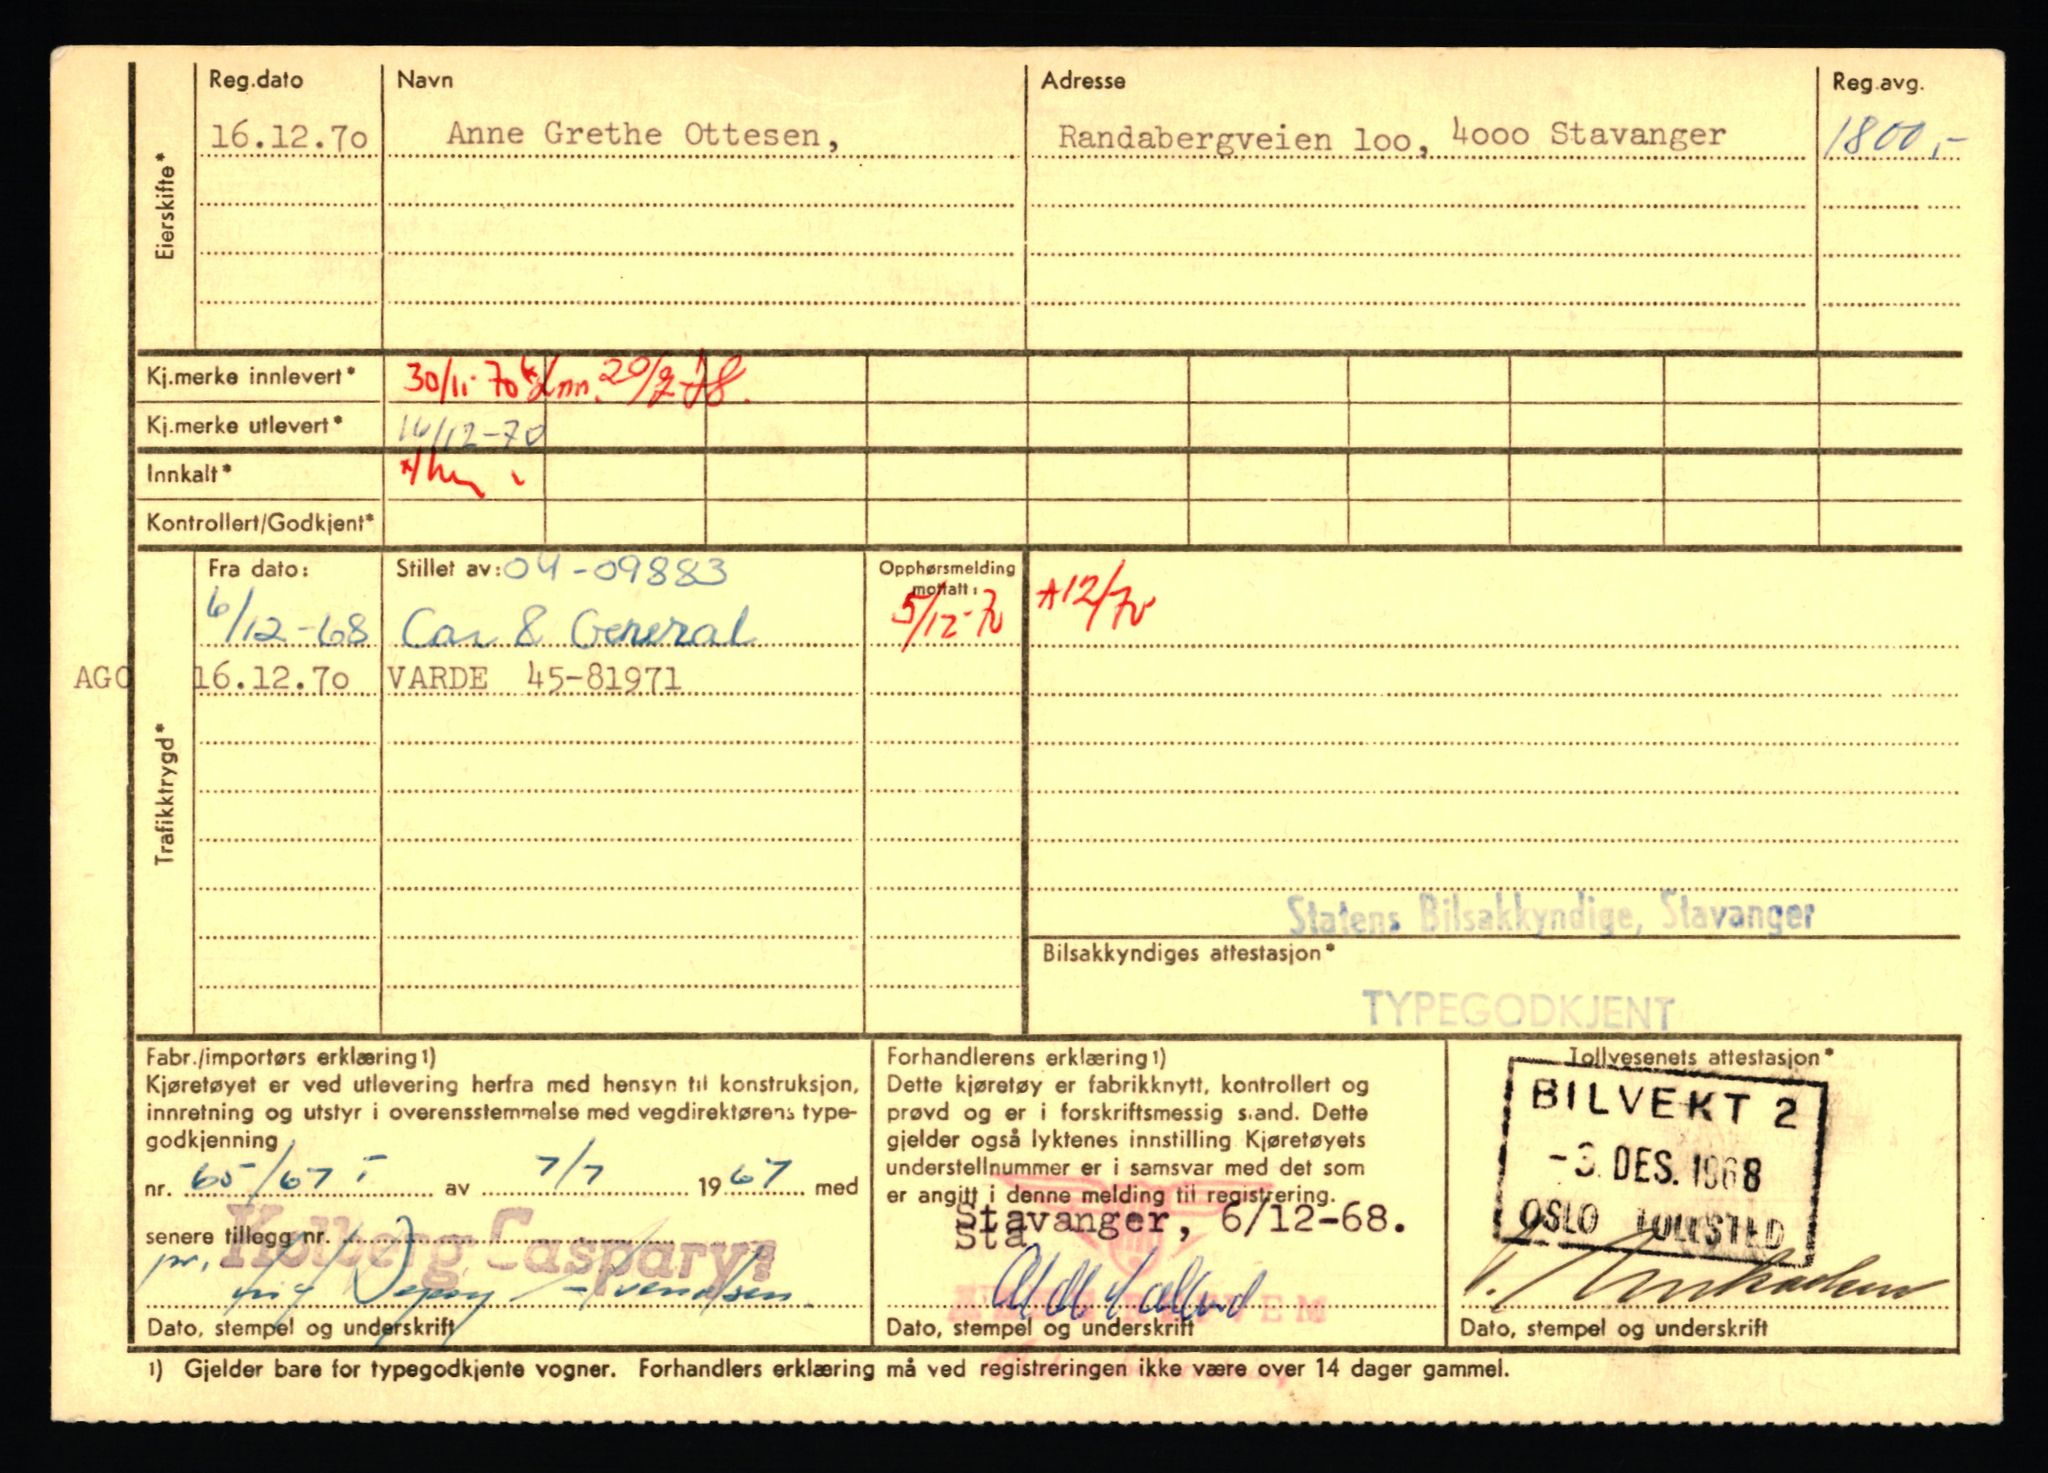 Reg.dato Navn Adresse Reg.avg.
16.12.70 Anne Grethe Ottesen, Randabergveien 100, 4000 Stavanger 1800,-
Eierskifte*
Kj.merke innlevert* 30/11-70 * Inn. 20/2-78.
Kj.merke utlevert* 16/12-70
Innkalt*
Kontrollert/Godkjent*
Fra dato: Stillet av: 04-09883 Opphørsmelding
mottatt:
6/12-68 Car & General 5/12-70 *12/70
AGO 16.12.70 VARDE 45-81971
Trafikktrygd*
Statens Bilsakkyndige, Stavanger
Bilsakkyndiges attestasjon*
TYPEGODKJENT
Fabr./importørs erklæring 1)
Kjøretøyet er ved utlevering herfra med hensyn til konstruksjon,
innretning og utstyr i overensstemmelse med vegdirektørens type-
godkjenning
nr. 65/67 I av 7/7 1967 med
senere tillegg nr.
Kolberg Caspary
pr.
Dato, stempel og underskrift
Forhandlerens erklæring 1)
Dette kjøretøy er fabrikknytt, kontrollert og
prøvd og er i forskriftsmessig stand. Dette
gjelder også lyktenes innstilling Kjøretøyets
understellnummer er i samsvar med det som
er angitt i denne melding til registrering.
Stavanger, 6/12-68.
Sta
Dato, stempel og underskrift
Tollvesenets attestasjon*
BILVEKT 2
-3. DES. 1968
OSLO TOLLSTED
Dato, stempel og underskrift
1) Gjelder bare for typegodkjente vogner. Forhandlers erklæring må ved registreringen ikke være over 14 dager gammel.